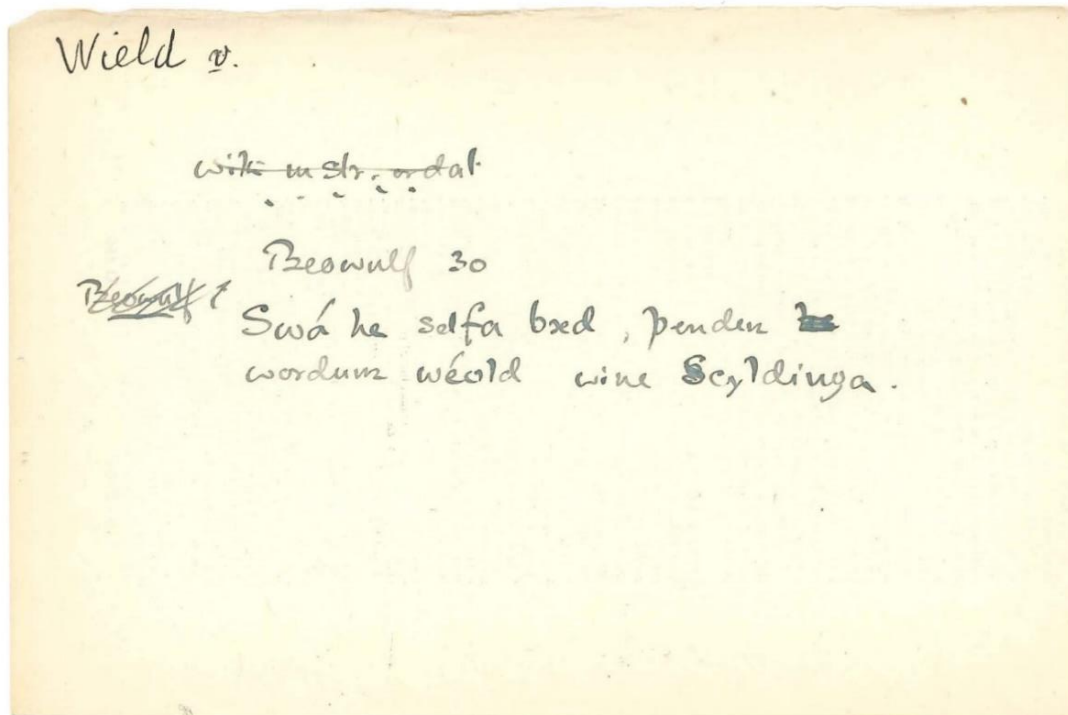 Wield v.
with instr. or dat.
Beowulf 30
Beowulf
Swá he selfa bæd, þenden
wordum wéold wine Scyldinga.